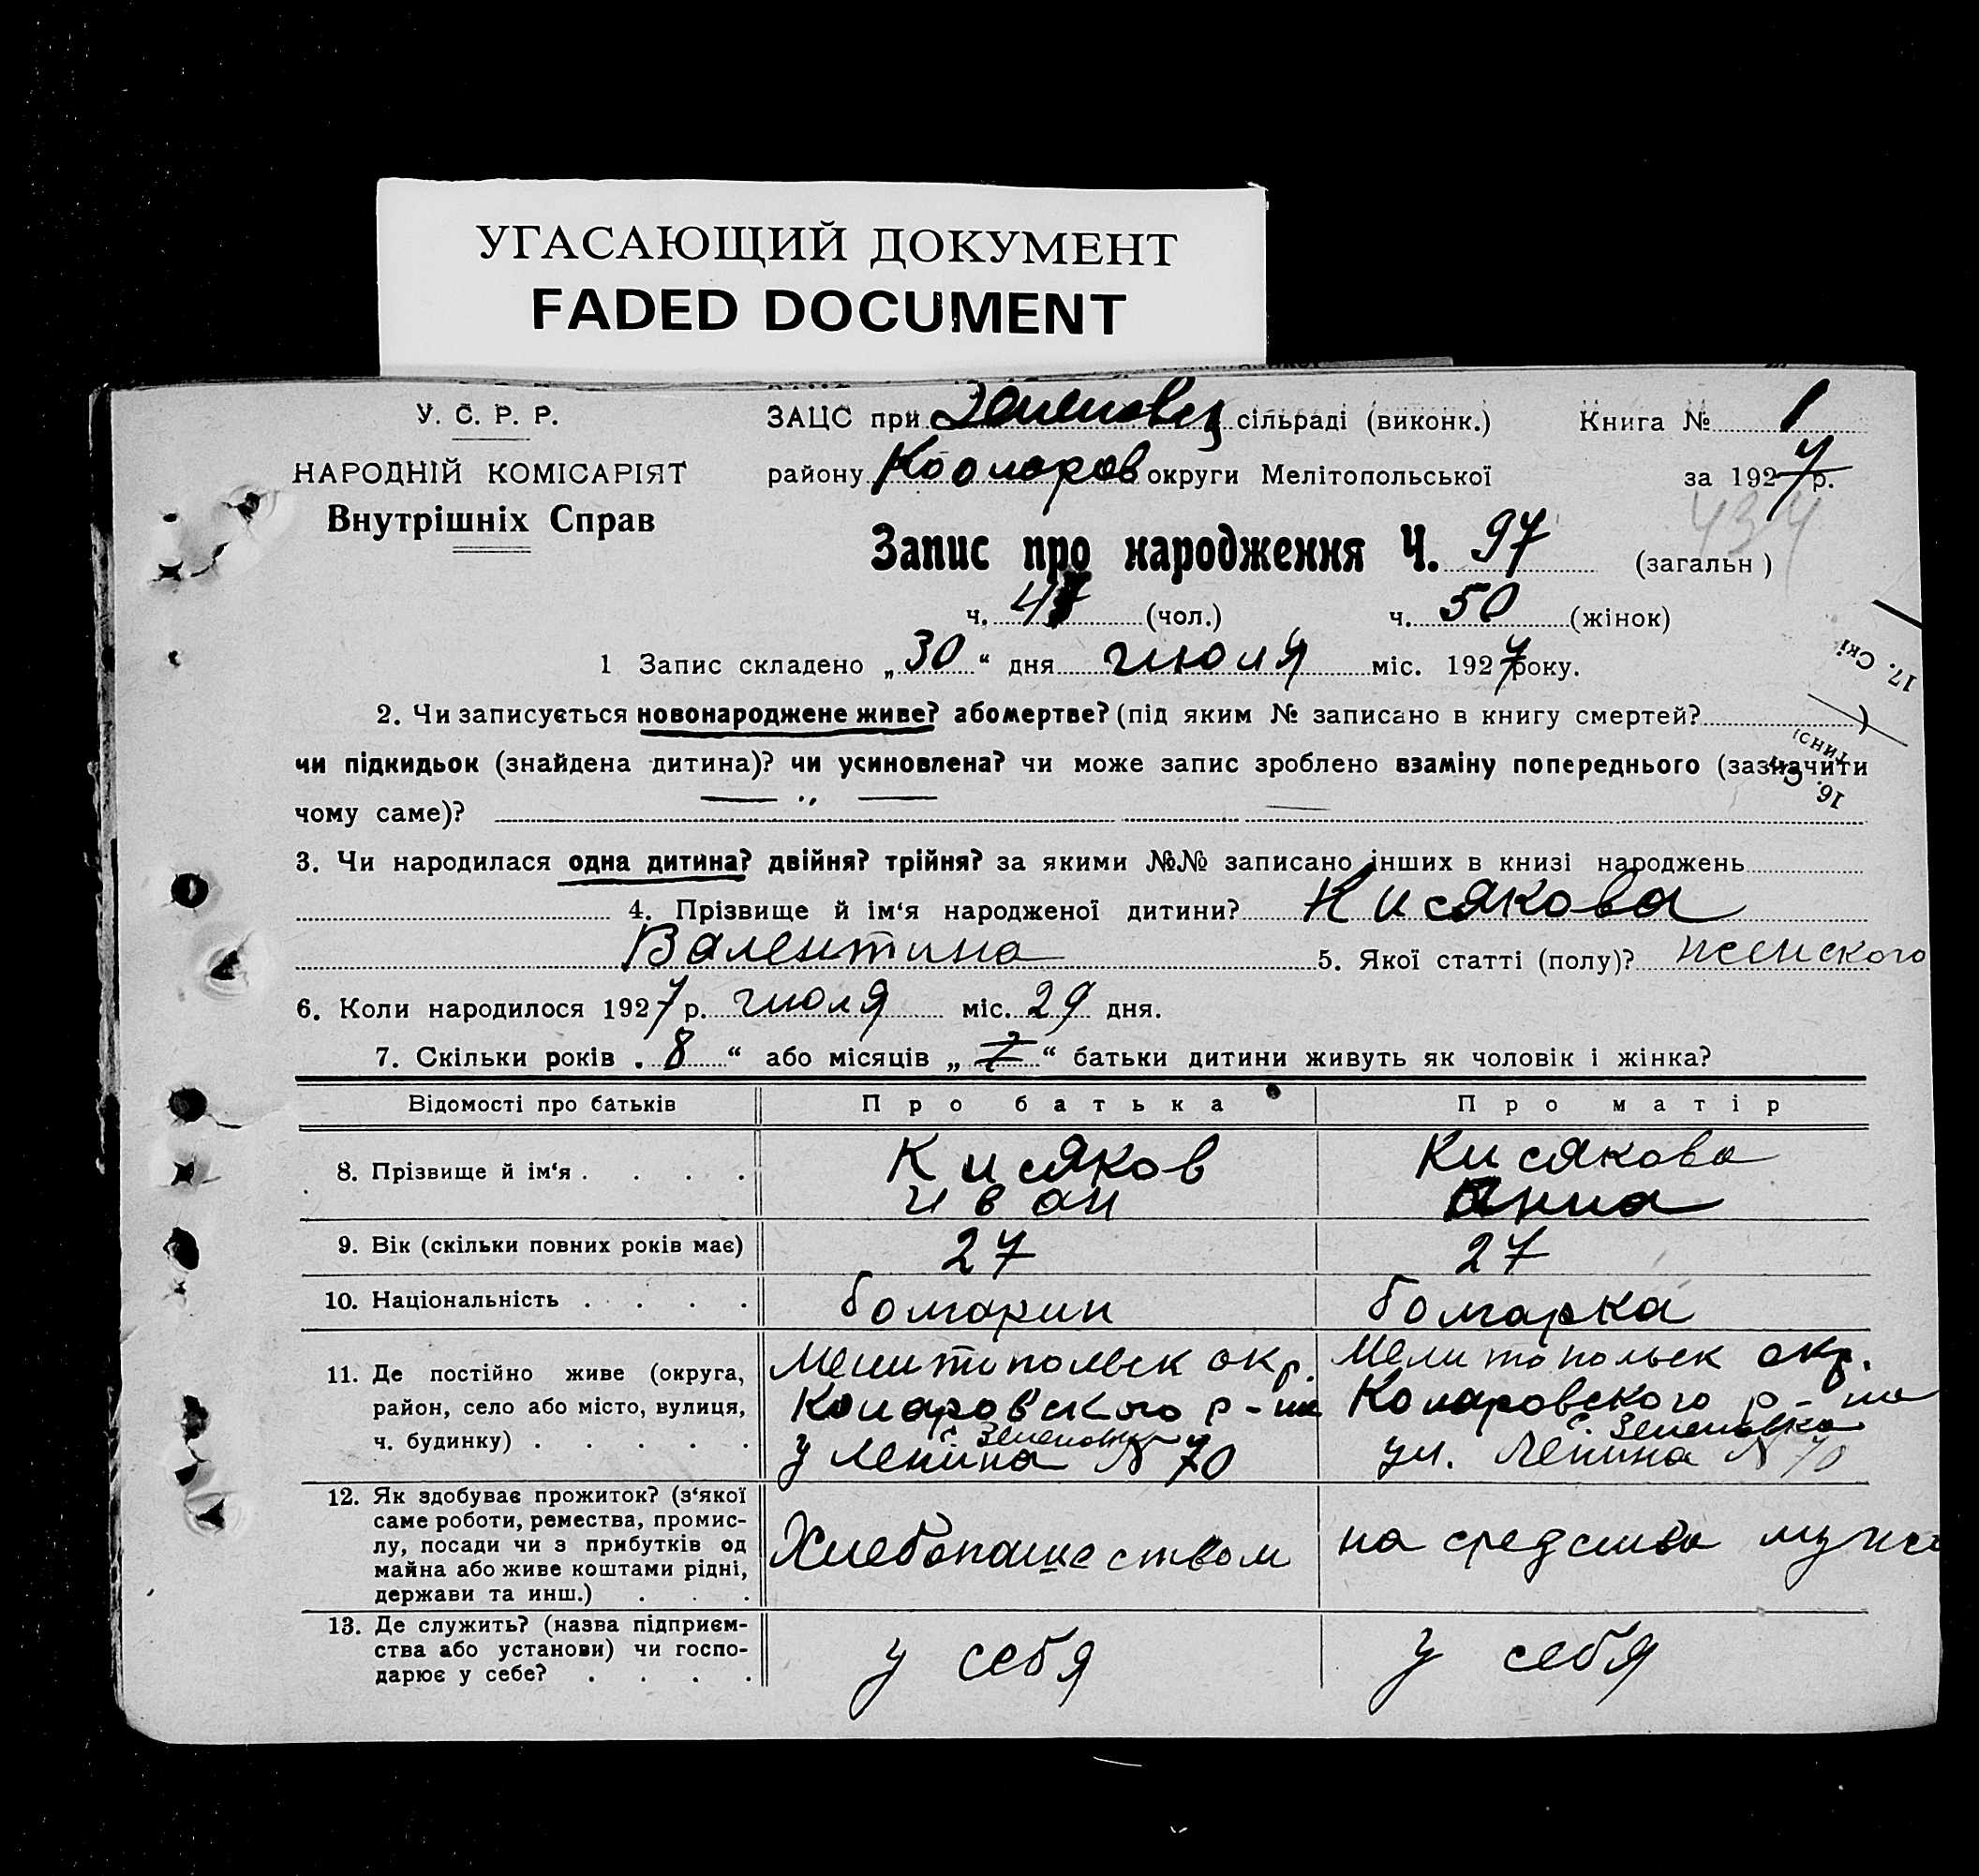 УГАСАЮЩИЙ ДОКУМЕНТ
FADED DOCUMENT
У. С. Р. Р.
НАРОДНІЙ КОМІСАРІЯТ
Внутрішніх Справ
ЗАЦС при сільраді (виконк.) Книга № 1
району Коларов округи Мелітопольської за 1927 р.
434
Запис про народження Ч. 97 (загальн)
ч. 47 (чол.) ч. 50 (жінок)
1 Запис складено „30“ дня июля міс. 1927 року.
17. Скі
2. Чи записується новонароджене живе? або мертве? (під яким № записано в книгу смертей? )
чи підкидьок (знайдена дитина)? чи усиновлена? чи може запис зроблено взаміну попереднього (зазначити
чому саме)? — „ —
16.
3. Чи народилася одна дитина? двійня? трійня? за якими №№ записано інших в книзі народжень
4. Прізвище й ім‘я народженої дитини? Кисякова
Валентина 5. Якої статті (полу)? женского
6. Коли народилося 1927 р. июля міс. 29 дня.
7. Скільки років „8“ або місяців „ “ батьки дитини живуть як чоловік і жінка?
Відомості про батьків Про батька Про матір
8. Прізвище й ім‘я . . . . Кисяков Кисякова
Иван Анна
9. Вік (скільки повних років має) 27 27
10. Національність . . . . болгарин болгарка
11. Де постійно живе (округа, Мелитопольск окр. Мелитопольск окр.
район, село або місто, вулиця, Коларовского р-на Коларовского р-на
с. Зеленовка с. Зеленовка
ч. будинку) . . . . . у Ленина № 70 ул. Ленина № 70
12. Як здобуває прожиток? (з‘якої
саме роботи, ремества, промис-
лу, посади чи з прибутків од Хлебопашеством на средства мужа
майна або живе коштами рідні,
держави та инш.) . . .
13. Де служить? (назва підприєм-
ства або установи) чи госпо- у себя у себя
дарює у себе? . . . .